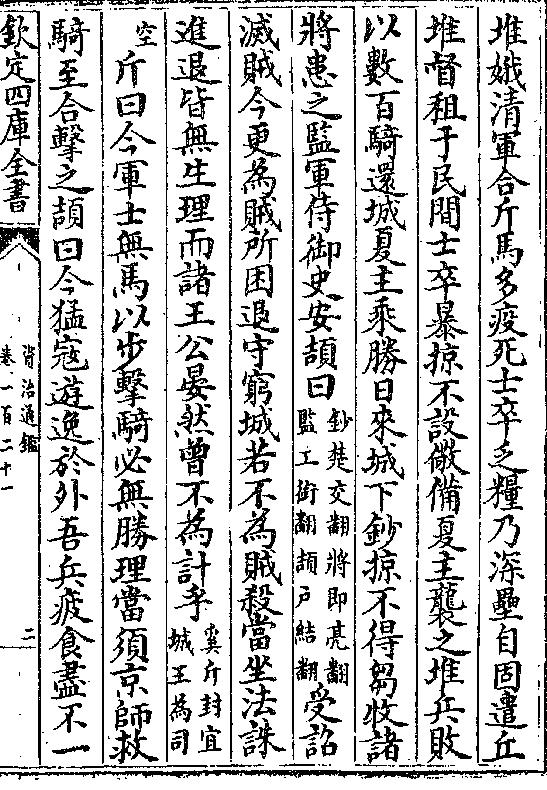 堆娥清軍合斤馬多疫死士卒乏糧乃深壘自固遣丘
堆督租于民間士卒暴掠不設儆備夏主襲之堆兵敗
以數百騎還城夏主乘勝日來城下鈔掠不得芻牧諸
將患之監軍侍御史安頡曰鈔楚交翻將即亮翻監工銜翻頡戶結翻受詔
滅賊今更為賊所困退守窮城若不為賊殺當坐法誅
進退皆無生理而諸王公晏然曾不為計乎奚斤封宜城王為司
空斤曰今軍士無馬以步擊騎必無勝理當須京師救
騎至合擊之頡曰今猛寇遊逸於外吾兵疲食盡不一
欽定四庫全書
資治通鑑
卷一百二十一
二